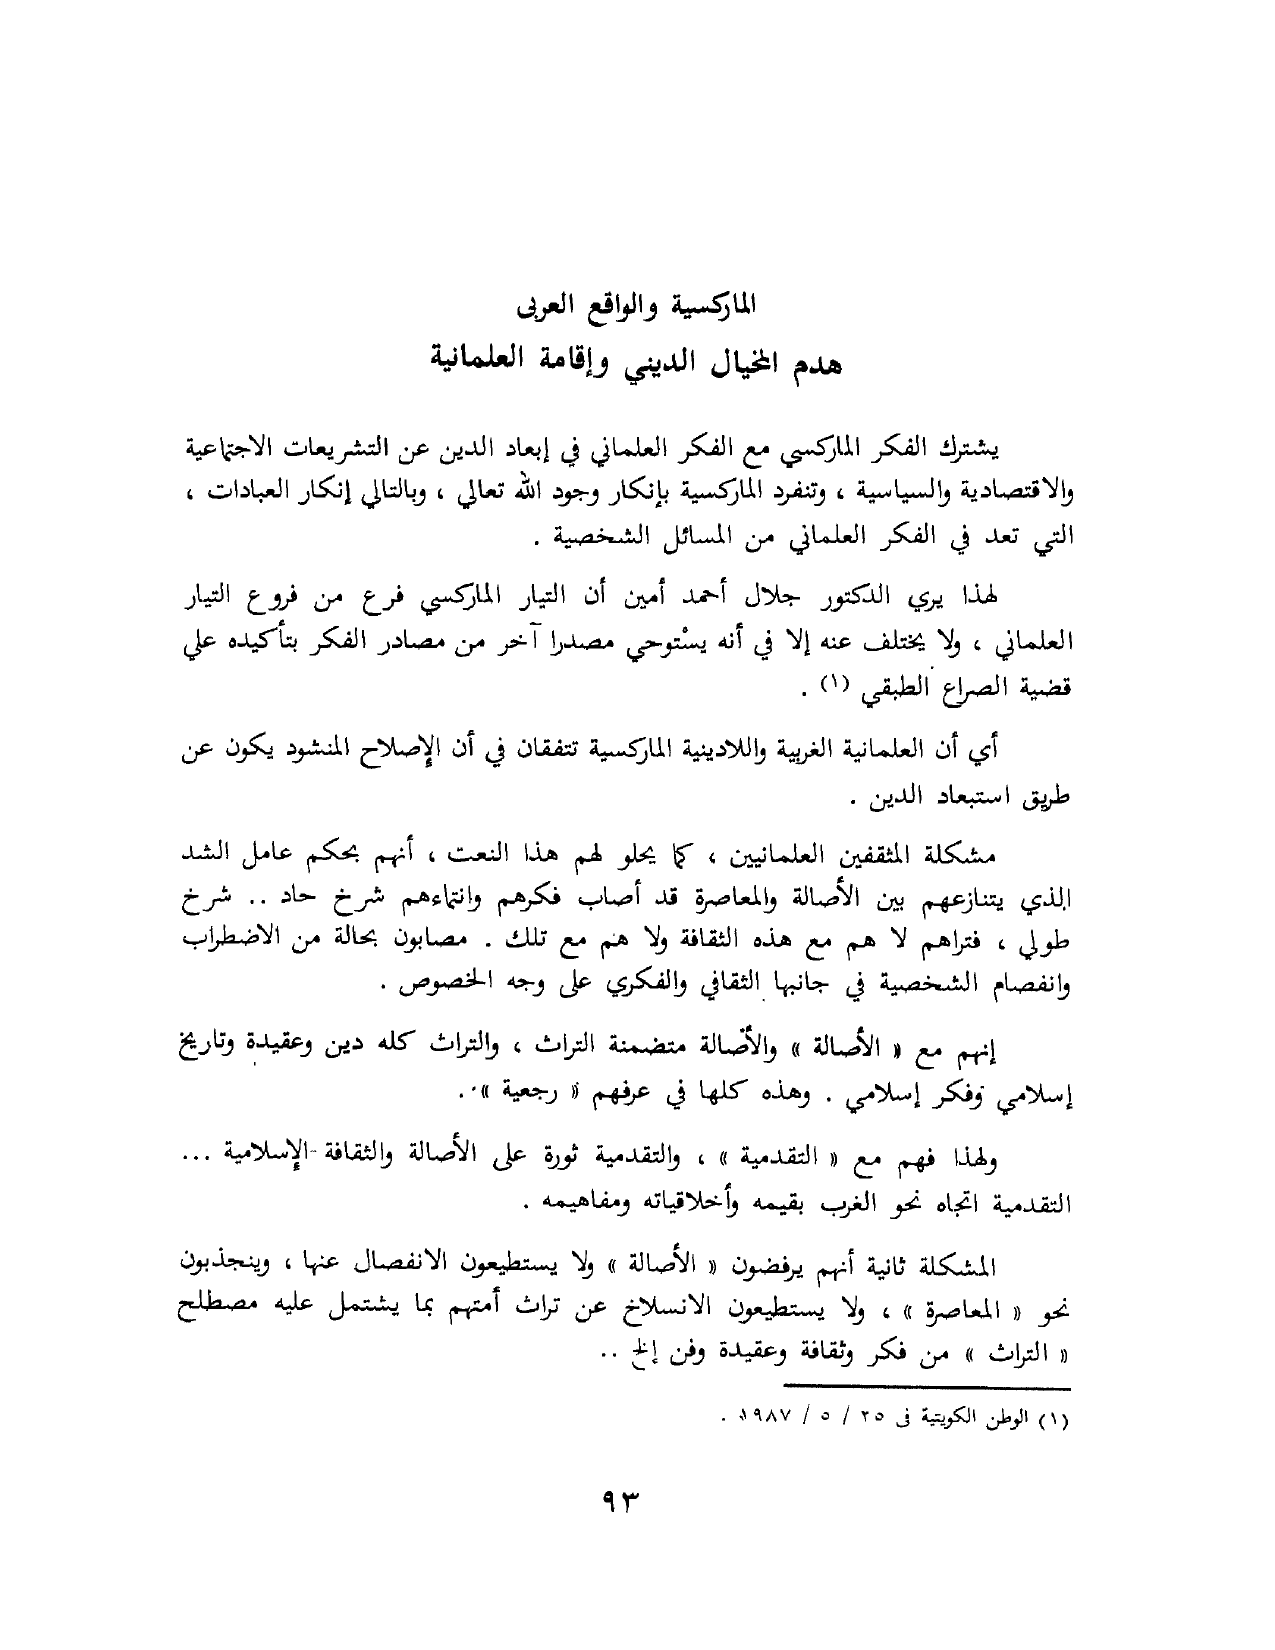 الماركسية والواقع العربى
هدم الخيال الديني وإقامة العلمانية
يشترك الفكر الماركسي مع الفكر العلماني في إبعاد الدين عن التشريعات الاجتماعية
والاقتصادية والسياسية ، وتنفرد الماركسية بإنكار وجود الله تعالي ، وبالتالي إنكار العبادات ،
التي تعد في الفكر العلماني من المسائل الشخصية .
لهذا يري الدكتور جلال أحمد أمين أن التيار الماركسي فرع من فروع التيار
العلماني ، ولا يختلف عنه إلا في أنه يستوحي مصدرا آخر من مصادر الفكر بتأكيده علي
قضية الصراع الطبقي (١) .
أي أن العلمانية الغربية واللادينية الماركسية تتفقان في أن الإصلاح المنشود يكون عن
طريق استبعاد الدين .
مشكلة المثقفين العلمانيين ، كما يحلو لهم هذا النعت ، أنهم بحكم عامل الشد
الذي يتنازعهم بين الأصالة والمعاصرة قد أصاب فكرهم وانتماءهم شرخ حاد .. شرخ
طولي ، فتراهم لا هم مع هذه الثقافة ولا هم مع تلك . مصابون بحالة من الاضطراب
وانفصام الشخصية في جانبها الثقافي والفكري على وجه الخصوص .
إنهم مع « الأصالة » والأصالة متضمنة التراث ، والتراث كله دين وعقيدة وتاريخ
إسلامي وفكر إسلامي . وهذه كلها في عرفهم « رجعية » .
ولهذا فهم مع « التقدمية » ، والتقدمية ثورة على الأصالة والثقافة الإسلامية ...
التقدمية اتجاه نحو الغرب بقيمه وأخلاقياته ومفاهيمه .
المشكلة ثانية أنهم يرفضون « الأصالة » ولا يستطيعون الانفصال عنها ، وينجذبون
نحو « المعاصرة » ، ولا يستطيعون الانسلاخ عن تراث أمتهم بما يشتمل عليه مصطلح
« التراث » من فكر وثقافة وعقيدة وفن إلخ ..
(١) الوطن الكويتية فى ٢٥ / ٥ / ١٩٨٧ .
٩٣